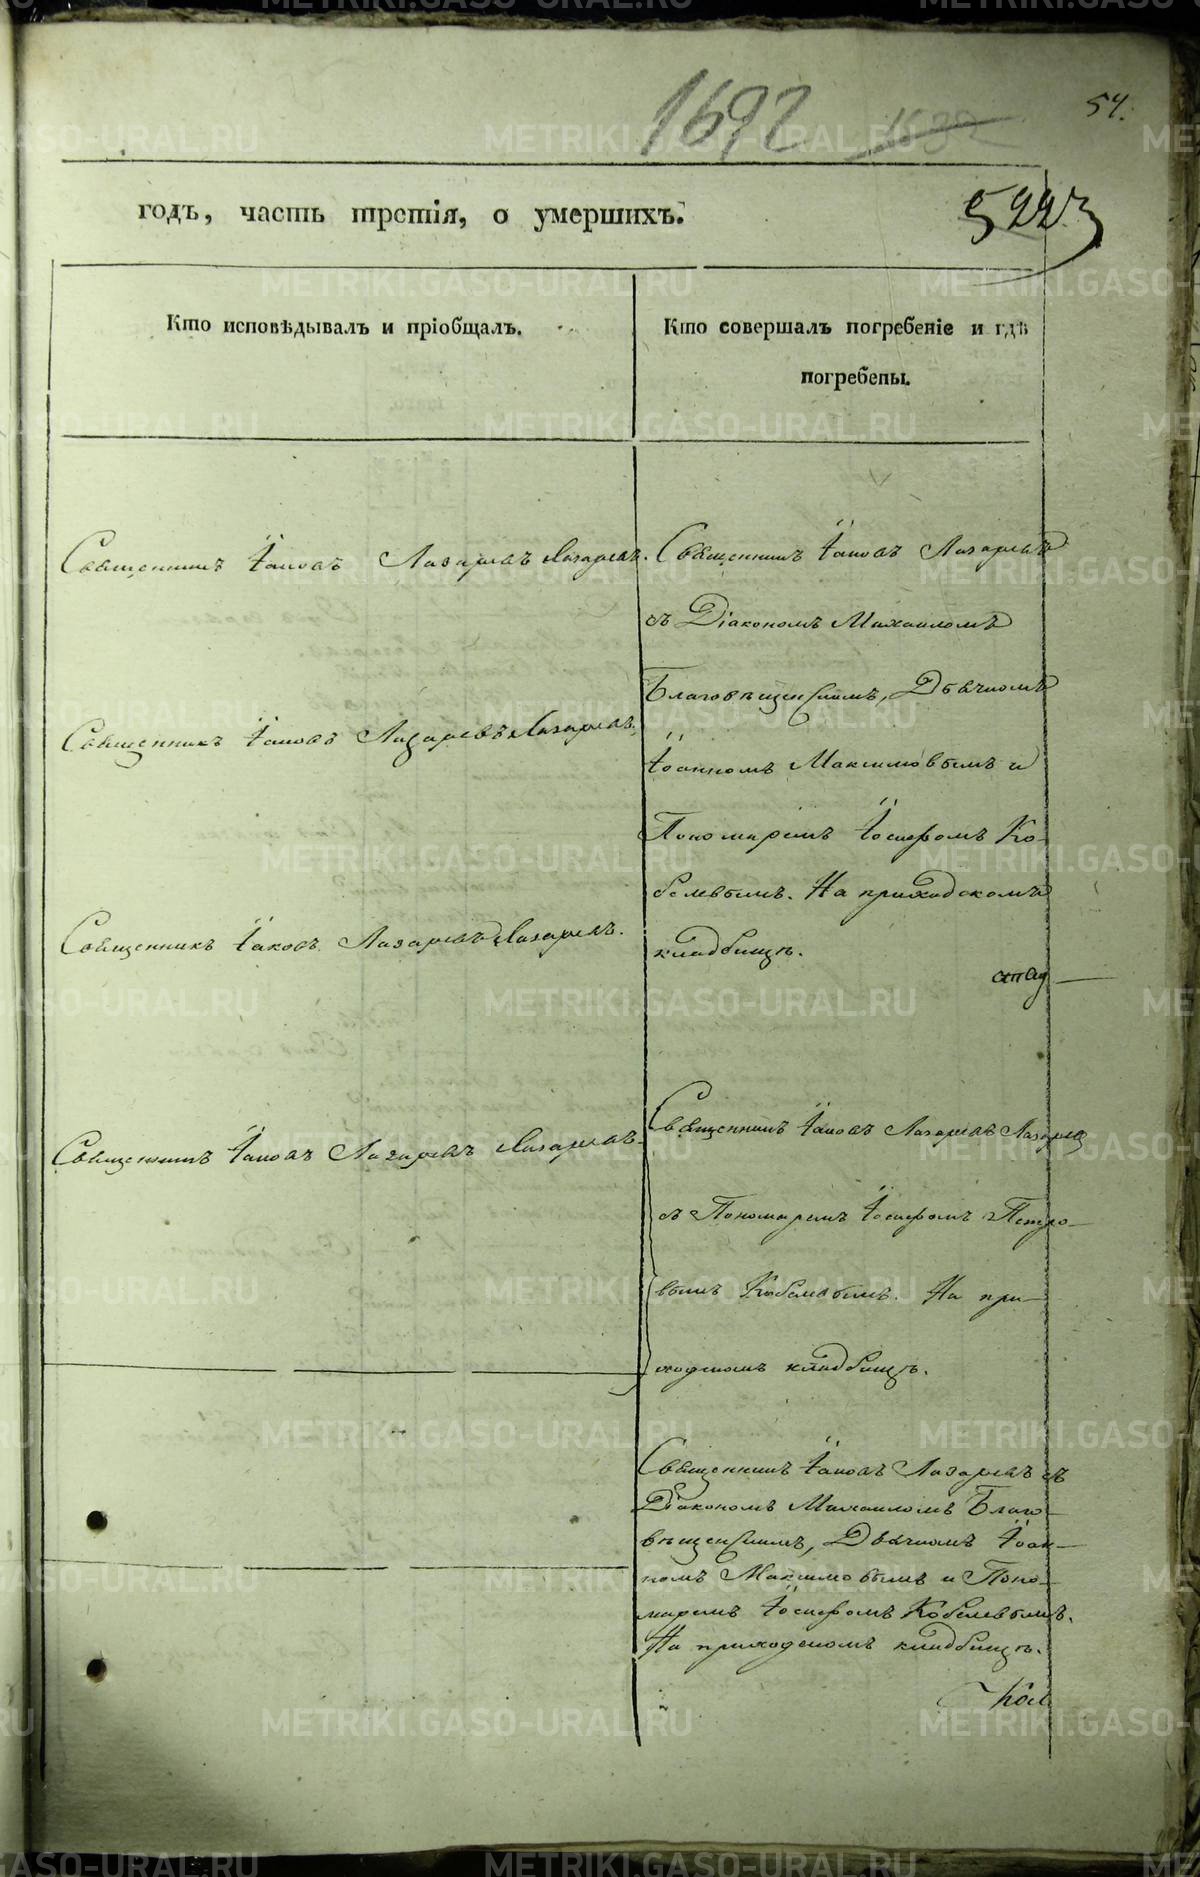 54.
1692 1639
522
годъ, часть третія, о умершихъ.
Кто исповѣдывалъ и пріобщалъ.
Кто совершалъ погребеніе и гдѣ
погребены.
Священникъ Іаковъ Лазаревъ Лазаревъ.
Священникъ Іаковъ Лазаревъ Лазаревъ.
Священникъ Іаковъ Лазаревъ Лазаревъ.
Священникъ Іаковъ Лазаревъ Лазаревъ.
Священникъ Іаковъ Лазаревъ
съ Діакономъ Михаиломъ
Благовѣщенскимъ, Дьячкомъ
Іоанномъ Максимовымъ и
Пономаремъ Іосифомъ Ко-
белевымъ. На приходскомъ
кладбищѣ.
Священникъ Іаковъ Лазаревъ Лазаревъ
съ Пономаремъ Іосифомъ Петро-
вымъ Кобелевымъ. На при-
ходскомъ кладбищѣ.
Священникъ Іаковъ Лазаревъ съ
Діакономъ Михаиломъ Благо-
вѣщенскимъ, Дьячкомъ Іоан-
номъ Максимовымъ и Поно-
маремъ Іосифомъ Кобелевымъ.
На приходскомъ кладбищѣ.
METRIKI.GASO-URAL.RU